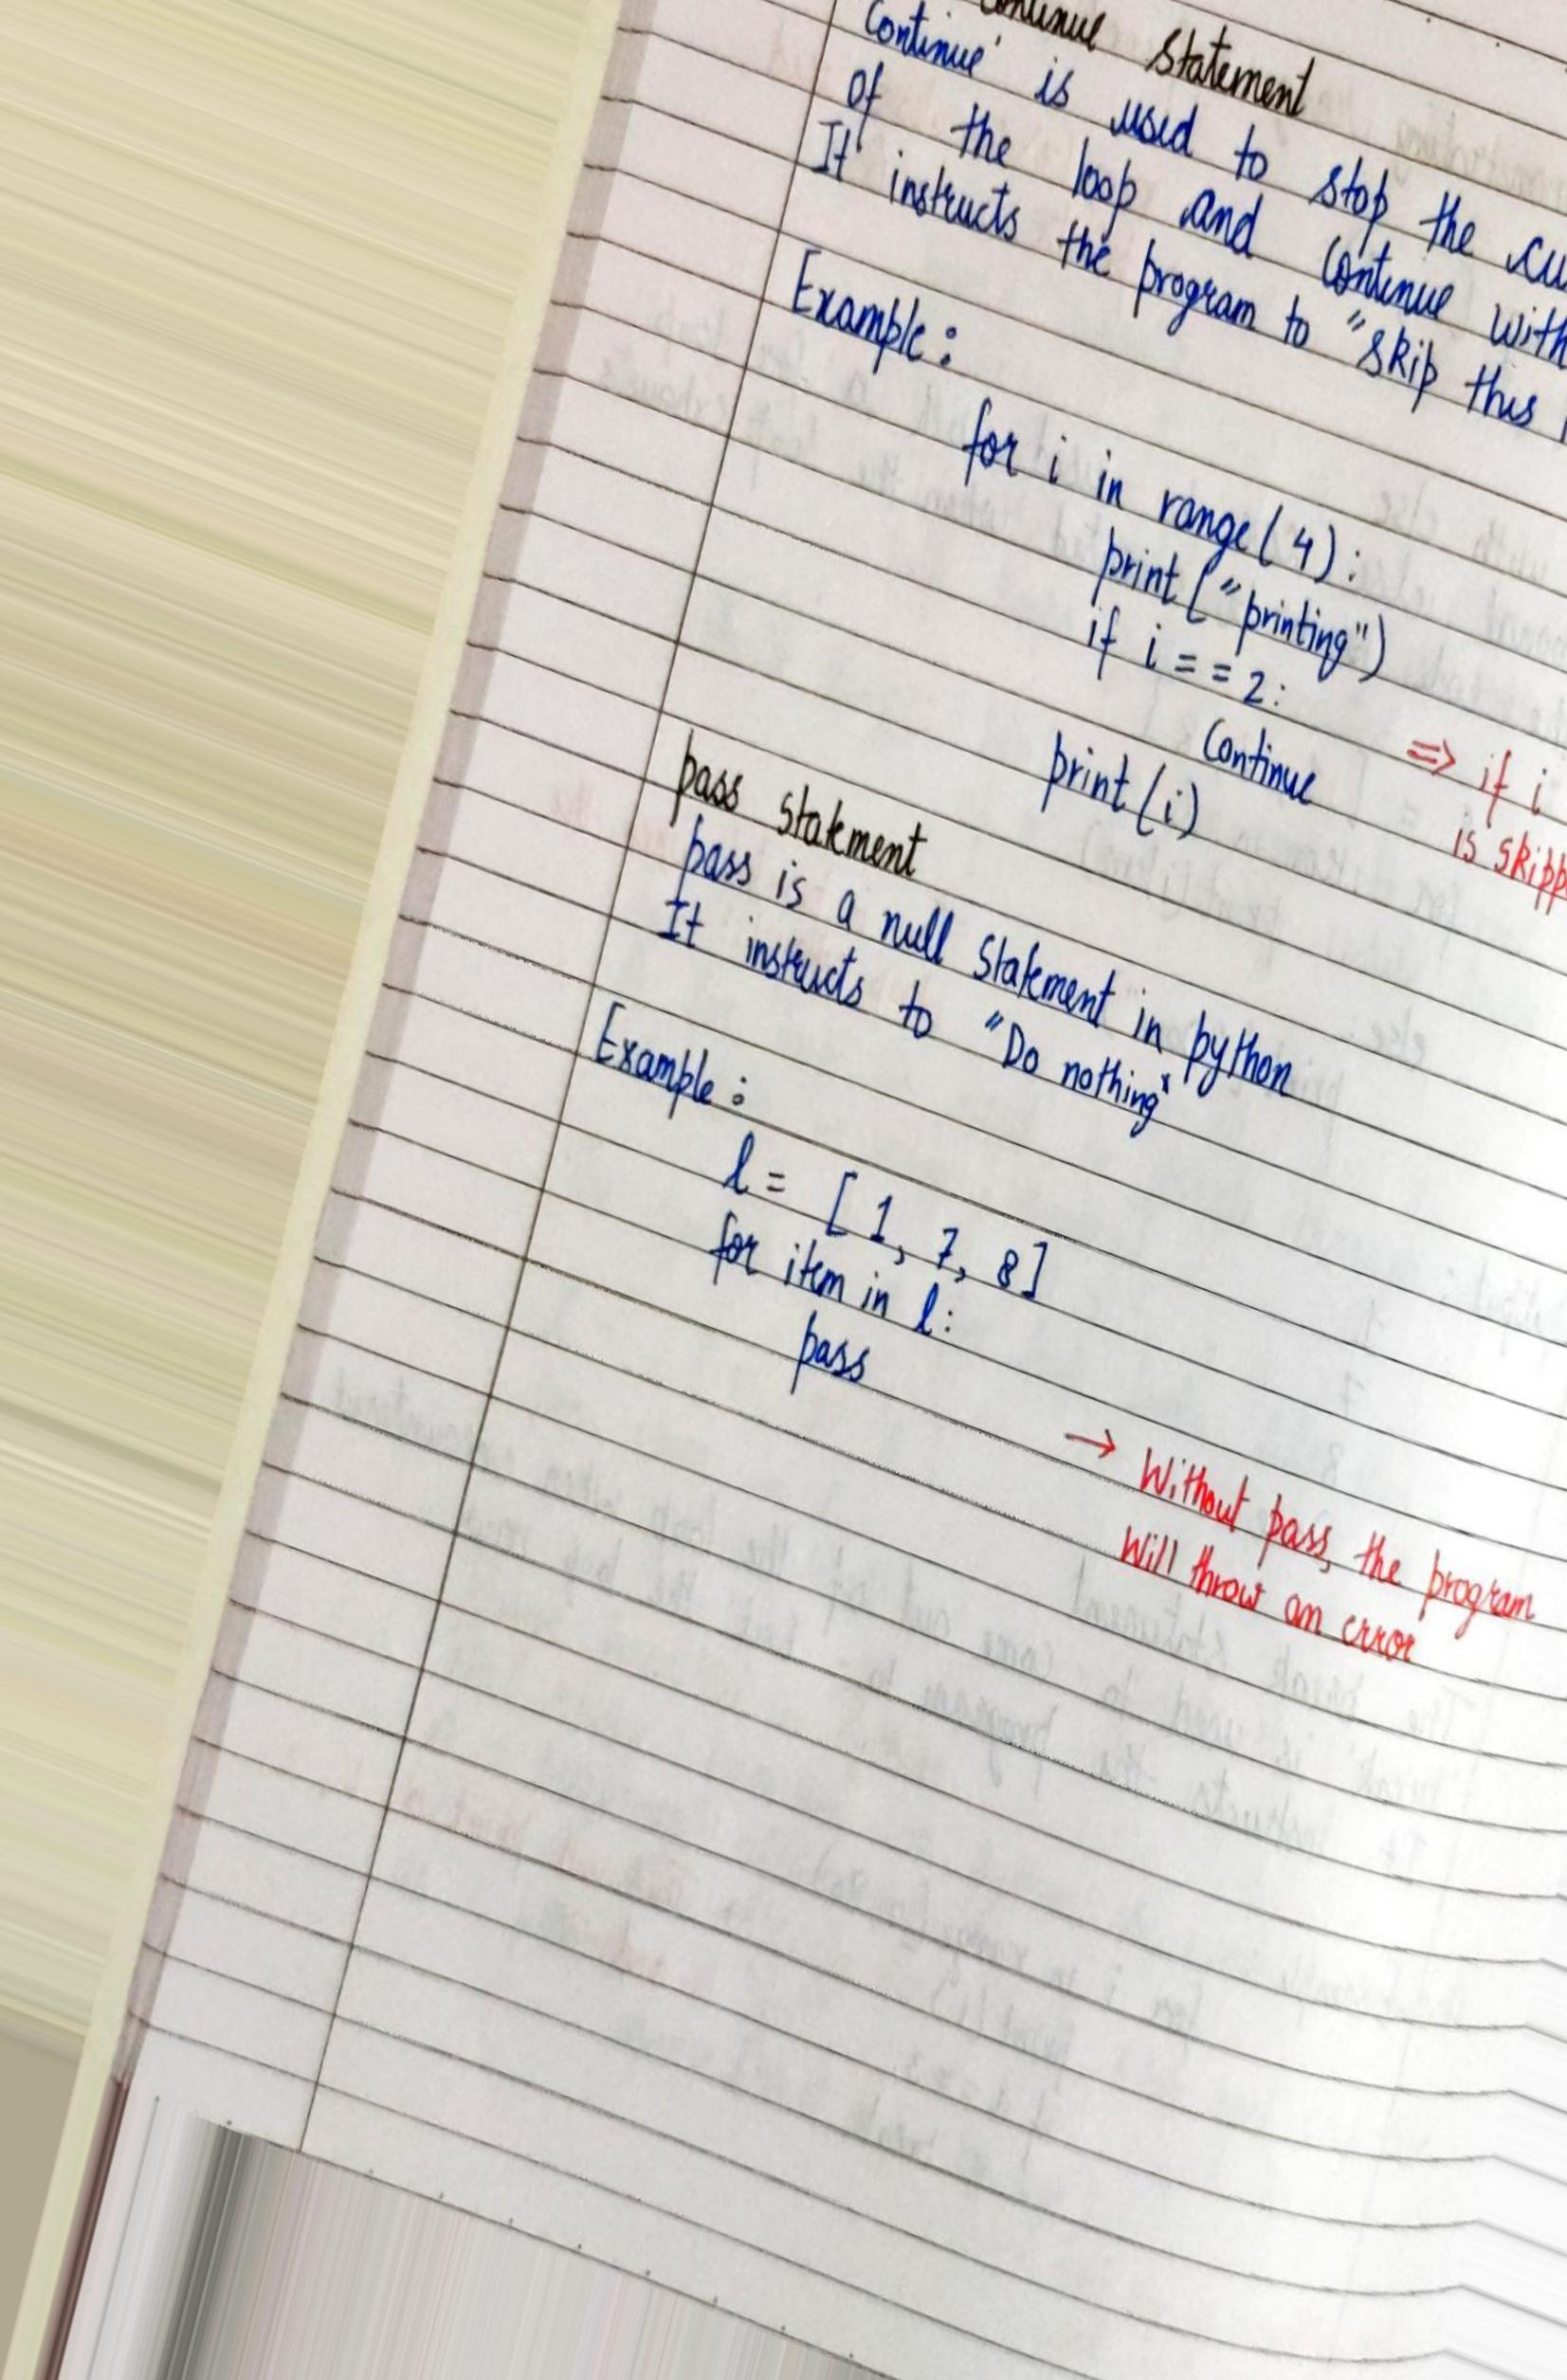 Continue Statement
'Continue' is used to stop the
of the loop and continue with
It instructs the program to "skip this
Example :
for i in range(4):
print("printing")
if i == 2:
Continue => if i
print(i) is
pass statement
pass is a null statement in python
It instructs to "Do nothing"
Example :
l = [1, 7, 8]
for item in l:
pass
→ Without pass, the program
Will throw an error